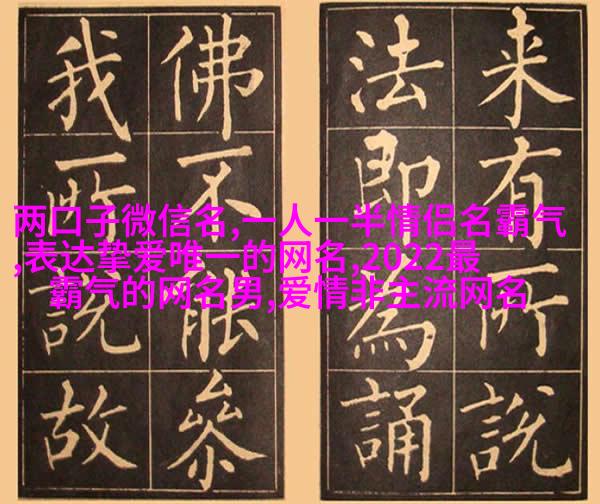 两口子微信名,一人一半情侣名霸气
,表达挚爱唯一的网名,2022最
霸气的网名男,爱情非主流网名
来有所說
法即為誦
佛不能參
我所說故